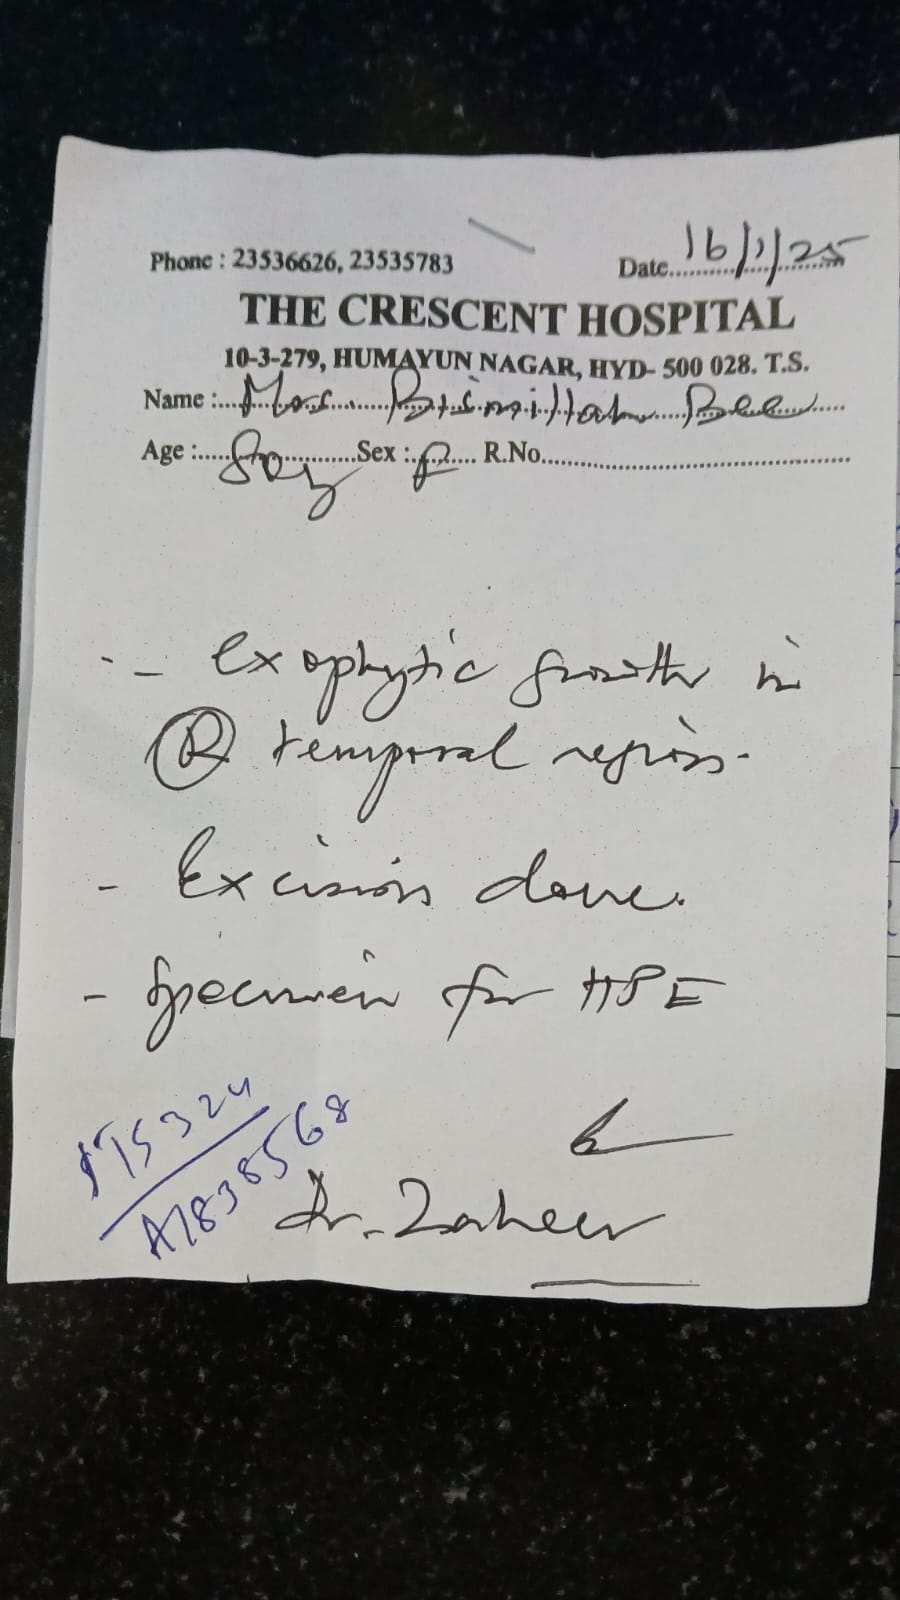 Phone : 23536626, 23535783
Date 16/1/25
THE CRESCENT HOSPITAL
10-3-279, HUMAYUN NAGAR, HYD- 500 028. T.S.
Name : Mrs. Bismillah Bee
Age : 80y Sex : F R.No.
- Exophytic growth in
Ⓡ temporal region.
- Excision done.
- Specimen for HPE
A7838568
Dr. Zaheer